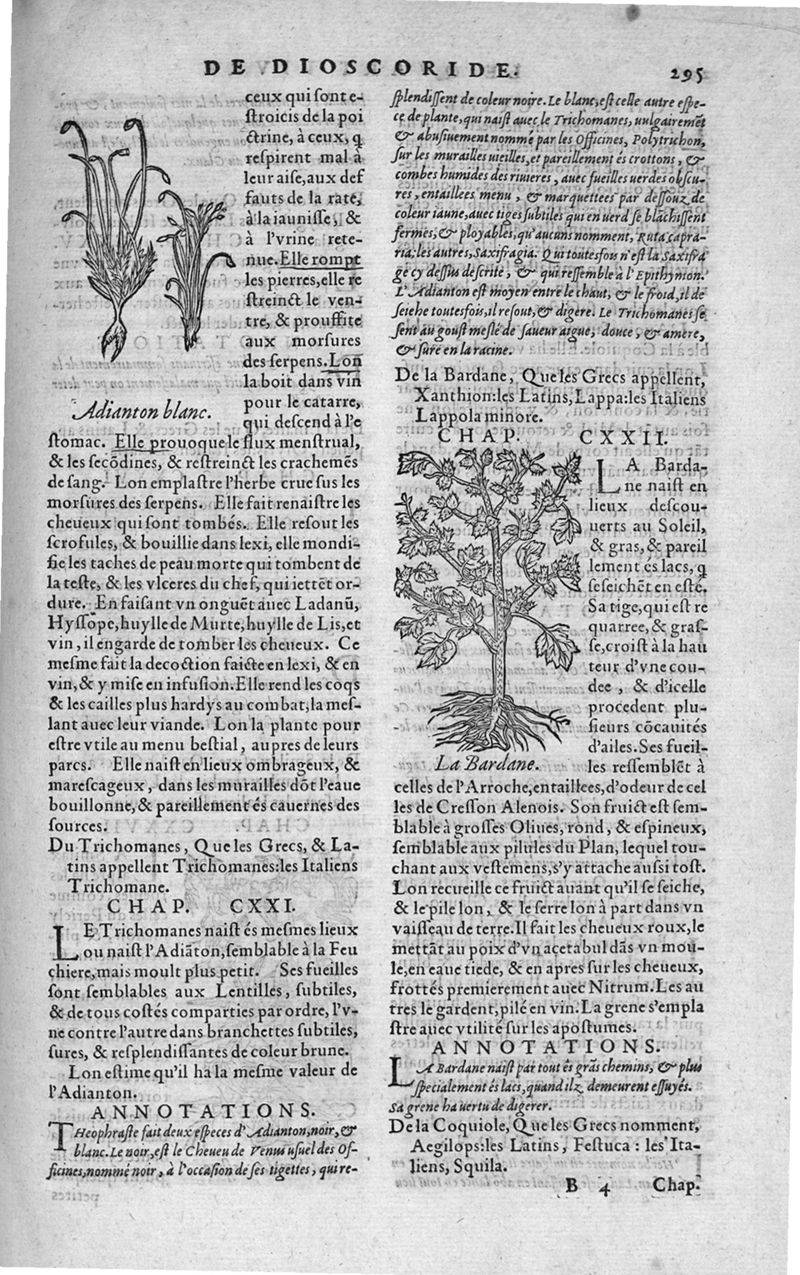 DE DIOSCORIDE. 295
ceux qui ſont e-
ſtroicis de la poi
ctrine, à ceux, q
reſpirent mal à
leur aiſe, aux def
fauts de la rate,
à la iauniſſe, &
à l'vrine rete-
nue. Elle rompt
les pierres, elle re
ſtreinct le ven-
tre, & prouffite
aux morſures
des ſerpens. Lon
la boit dans vin
pour le catarre,
qui deſcend à l'e
Adianton blanc.
ſtomac. Elle prouoque le flux menſtrual,
& les ſecõdines, & reſtreinct les crachemẽs
de ſang. Lon emplaſtre l'herbe crue ſus les
morſures des ſerpens. Elle fait renaiſtre les
cheueux qui ſont tombés. Elle reſout les
ſcrofules, & bouillie dans lexi, elle mondi-
fie les taches de peau morte qui tombent de
la teſte, & les vlceres du chef, qui iettẽt or-
dure. En faiſant vn onguẽt auec Ladanũ,
Hyſſope, huylle de Murte, huylle de Lis, et
vin, il engarde de tomber les cheueux. Ce
meſme fait la decoction faicte en lexi, & en
vin, & y miſe en infuſion. Elle rend les coqs
& les cailles plus hardys au combat, la meſ-
lant auec leur viande. Lon la plante pour
eſtre vtile au menu beſtial, au pres de leurs
parcs. Elle naiſt en lieux ombrageux, &
mareſcageux, dans les murailles dõt l'eaue
bouillonne, & pareillement és cauernes des
ſources.
Du Trichomanes, Que les Grecs, & La-
tins appellent Trichomanes: les Italiens
Trichomane.
CHAP. CXXI.
LE Trichomanes naiſt és meſmes lieux
ou naiſt l'Adiãton, ſemblable à la Feu
chiere, mais moult plus petit. Ses fueilles
ſont ſemblables aux Lentilles, ſubtiles,
& de tous coſtés comparties par ordre, l'v-
ne contre l'autre dans branchettes ſubtiles,
ſures, & reſplendiſſantes de coleur brune.
Lon eſtime qu'il ha la meſme valeur de
l'Adianton.
ANNOTATIONS.
THeophraſte fait deux eſpeces d'Adianton, noir, &
blanc. Le noir, eſt le Cheueu de Venus uſuel des Of-
ficines, nommé noir, à l'occaſion de ſes tigettes, qui re-
ſplendiſſent de coleur noire. Le blanc, eſt celle autre eſpe-
ce de plante, qui naiſt auec le Trichomanes, uulgairemẽt
& abuſiuement nommé par les Officines, Polytrichon,
ſur les murailles uieilles, et pareillement és crottons, &
combes humides des riuieres, auec fueilles uerdes obſcu-
res, entaillees menu, & marquettees par deſſouz de
coleur iaune, auec tiges ſubtiles qui en uerd ſe blãchiſſent
fermes, & ployables, qu'aucuns nomment, Ruta capra-
ria: les autres, Saxifragia. Qui toutesfois n'eſt la Saxifra
ge cy deſſus deſcrite, & qui reſſemble à l'Epithymon.
L'Adianton eſt moyen entre le chaut, & le froid, il de
ſeiche toutesfois, il reſout, & digere. Le Trichomanes ſe
ſent au gouſt meſlé de ſaueur aigue, douce, & amere,
& ſure en la racine.
De la Bardane, Que les Grecs appellent,
Xanthion: les Latins, Lappa: les Italiens
Lappola minore.
CHAP. CXXII.
LA Barda-
ne naiſt en
lieux deſcou-
uerts au Soleil,
& gras, & pareil
lement és lacs, q
ſe ſeichẽt en eſté.
Sa tige, qui eſt re
quarree, & graſ-
ſe, croiſt à la hau
teur d'vne cou-
dee, & d'icelle
procedent plu-
ſieurs cõcauités
d'ailes. Ses fueil-
La Bardane.
les reſſemblẽt à
celles de l'Arroche, entaillees, d'odeur de cel
les de Creſſon Alenois. Son fruict eſt ſem-
blable à groſſes Oliues, rond, & eſpineux,
ſemblable aux pilules du Plan, lequel tou-
chant aux veſtemens, s'y attache auſſi toſt.
Lon recueille ce fruict auant qu'il ſe ſeiche,
& le pile lon, & le ſerre lon à part dans vn
vaiſſeau de terre. Il fait les cheueux roux, le
mettãt au poix d'vn acetabul dãs vn mou-
le, en eaue tiede, & en apres ſur les cheueux,
frottés premierement auec Nitrum. Les au
tres le gardent, pilé en vin. La grene s'empla
ſtre auec vtilité ſur les apoſtumes.
ANNOTATIONS.
LA Bardane naiſt par tout és grãs chemins, & plus
ſpecialement és lacs, quand ilz demeurent eſſuyés.
Sa grene ha uertu de digerer.
De la Coquiole, Que les Grecs nomment,
Aegilops: les Latins, Feſtuca: les Ita-
liens, Squila.
B 4 Chap.